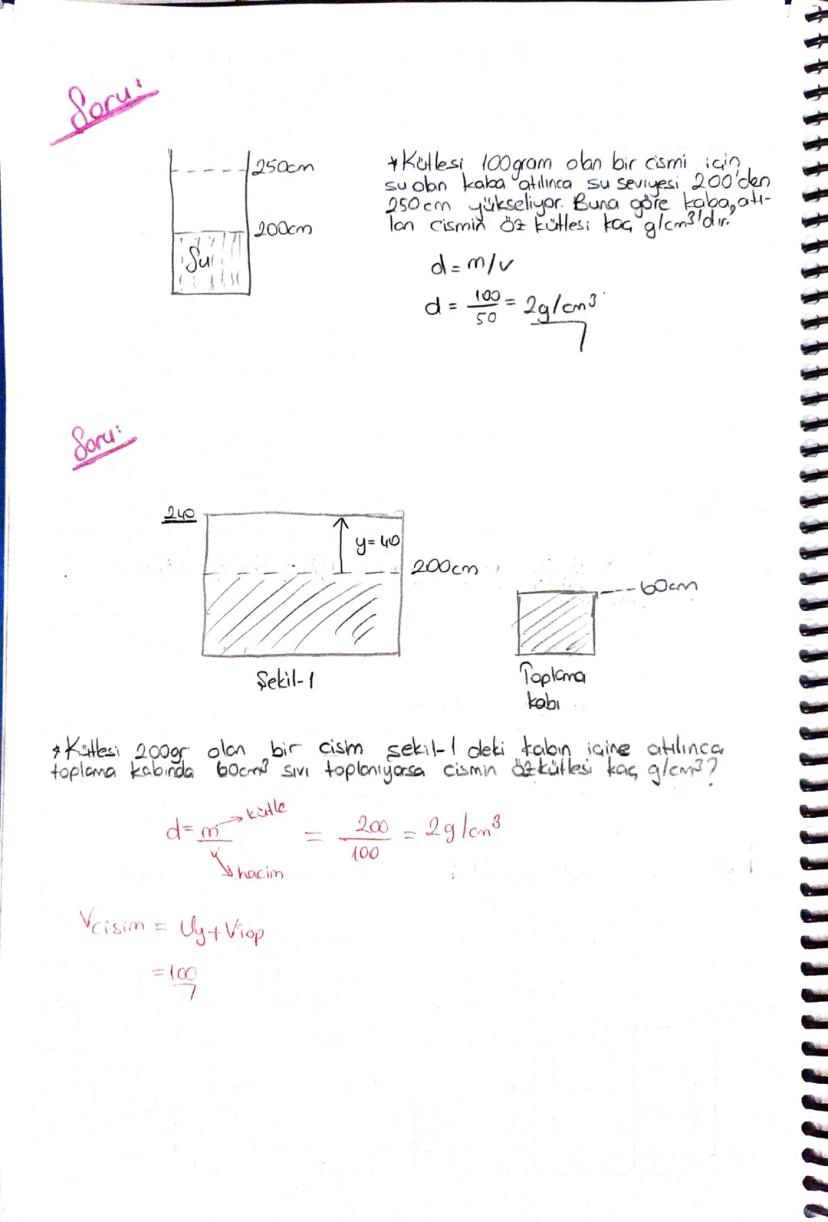 Soru:
250cm
200cm
Su
* Kütlesi 100gram olan bir cismi için
su olan kaba atılınca su seviyesi 200'den
250cm yükseliyor. Buna göre kaba atı-
lan cismin öz kütlesi kaç g/cm³'dır.
d = m/v
d = 100/50 = 2g/cm³
Soru:
240
y=40
200cm
60cm
Şekil-1
Toplama
kabı
* Kütlesi 200gr olan bir cism şekil-1 deki kabın içine atılınca
toplama kabında 60cm³ sıvı toplanıyorsa cismin özkütlesi kaç g/cm³?
d = m/v = 200/100 = 2g/cm³
kütle
hacim
Vcisim = Vy + Vtop
= 100